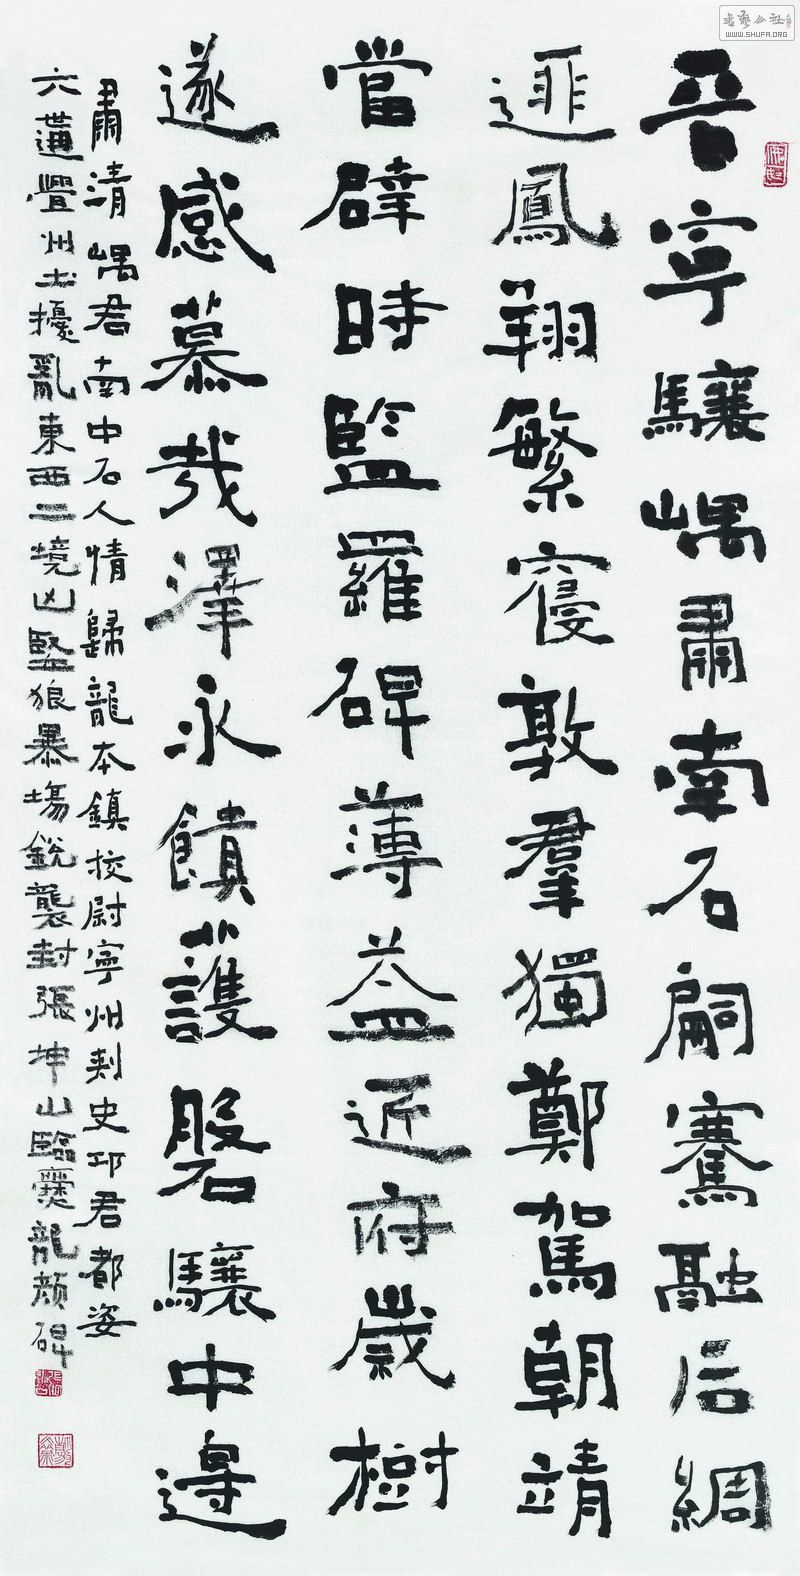 晋寧驤嵎肅南石嗣騫融后綢
遝鳳翔繁寢敦羣獨鄭駕朝靖
當辟時監羅碑薄益近府歲樹
遂感慕哉澤永饋護磐驤中邊
肅清嵎君南中石人情歸龍本鎮校尉寧州刺史邛君都姿
六遷疊州土擾亂東西二境凶豎狼暴場銳襲封張坤山臨爨龍顏碑
書藝公社
WWW.SHUFA.ORG